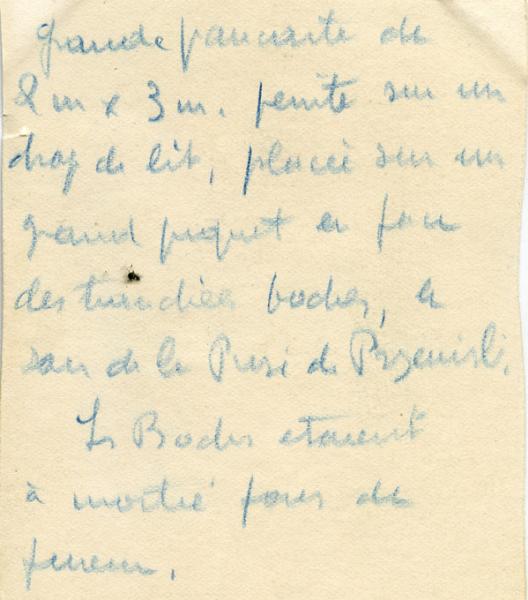 grande pancarte de
2 m x 3 m. peinte sur un
drap de lit, placée sur un
grand piquet en face
des tranchées boches, le
jour de la Prise de Przemisl.
Les Boches etaient
à moitié fous de
fureur.